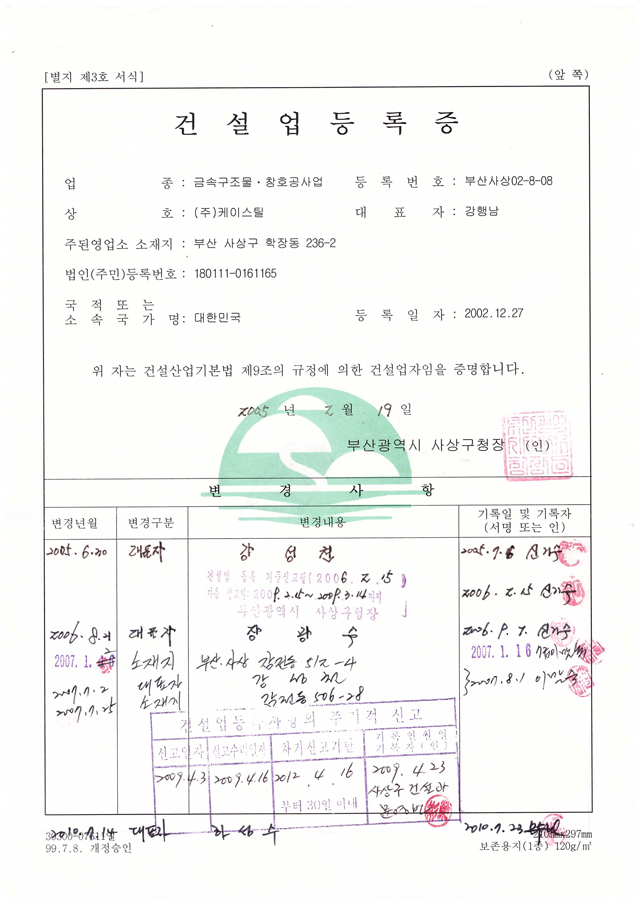 [별지 제3호 서식]
(앞 쪽)
건 설 업 등 록 증
업 종 : 금속구조물·창호공사업 등 록 번 호 : 부산사상02-8-08
상 호 : (주)케이스틸 대 표 자 : 강행남
주된영업소 소재지 : 부산 사상구 학장동 236-2
법인(주민)등록번호 : 180111-0161165
국 적 또 는
소 속 국 가 명 : 대한민국 등 록 일 자 : 2002.12.27
위 자는 건설산업기본법 제9조의 규정에 의한 건설업자임을 증명합니다.
2005 년 2 월 19 일
부산광역시 사상구청장 (인)
변 경 사 항
변경년월 변경구분 변경내용 기록일 및 기록자
(서명 또는 인)
2005.6.30 대표자 강 성 천 2005.7.6
건설업 등록 기준신고필(2006. 2. 15)
2006. 2. 15
부산광역시 사상구청장
2006. 8. 대표자 장 광 수 2006. 9. 7.
2007. 1. 소재지 부산.사상 감전동 512-4 2007. 1. 16
2007.7.2 대표자 강
2007.7.25 소재지 감전동 506-28 2007.8.1
건설업등록사항의 주기적 신고
신고일자 신고수리일자 차기신고기한 기록인원인
기록자(인)
2009.4.3 2009.4.16 2012. 4. 16 2009. 4. 23
부터 30일 이내 사상구 건설과
2010.7.14 대표자 하 성 수 2010.7.23
99.7.8. 개정승인
210mm×297mm
보존용지(1종) 120g/㎡